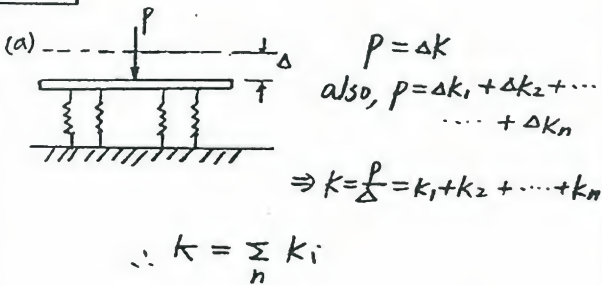 P
(a)
Δ
P = ΔK
also, P = Δk₁ + Δk₂ + ⋯
⋯⋯ + Δkₙ
⇒ K = P/Δ = k₁ + k₂ + ⋯⋯ + kₙ
∴ K = Σₙ Kᵢ